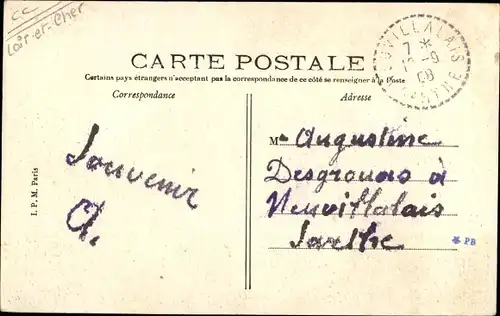 CC
Loir-et-Cher
CARTE POSTALE
Certains pays étrangers n'acceptant pas la correspondance de ce côté se renseigner à la Poste
Correspondance
Adresse
UVILLALAIS
7 *
10-9
08
SARTHE
I. P. M. Paris
Souvenir
A.
M Augustine
Desgrouas à
Neuvillalais
Sarthe
* PB